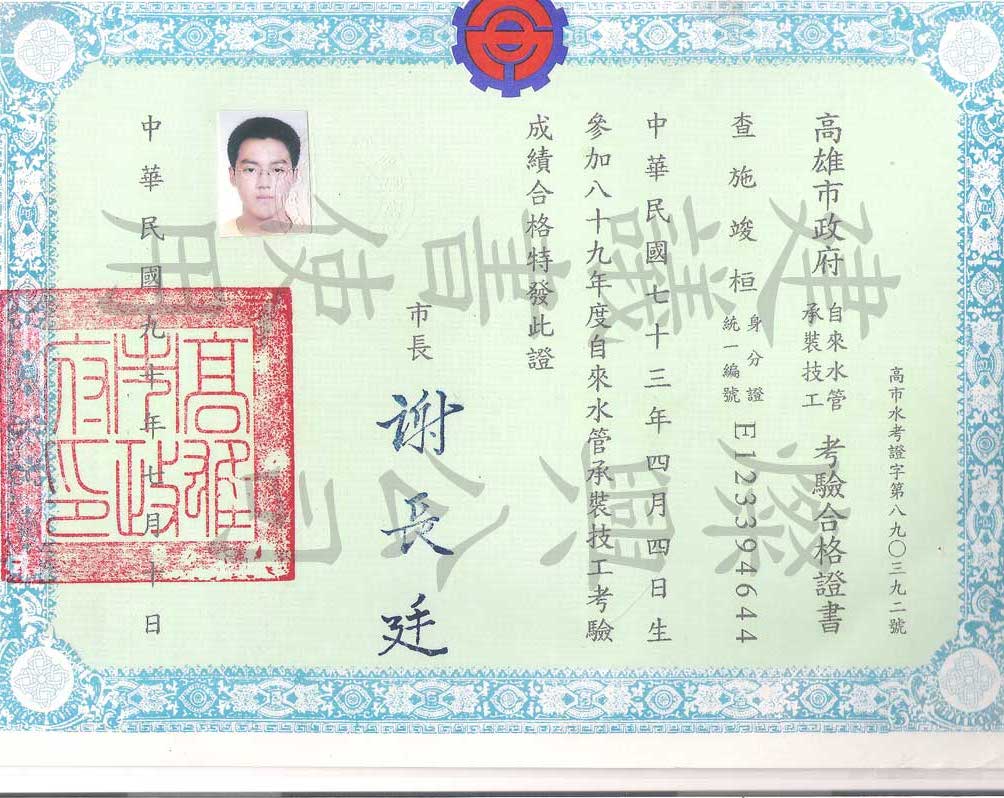 高市水考證字第八九〇三九二號
高雄市政府 自來水管承裝技工 考驗合格證書
查施竣桓 身分證統一編號 E123394644
中華民國七十三年四月四日生
參加八十九年度自來水管承裝技工考驗
成績合格特發此證
市長 謝長廷
中華民國九十年 月十日
高雄市政府印